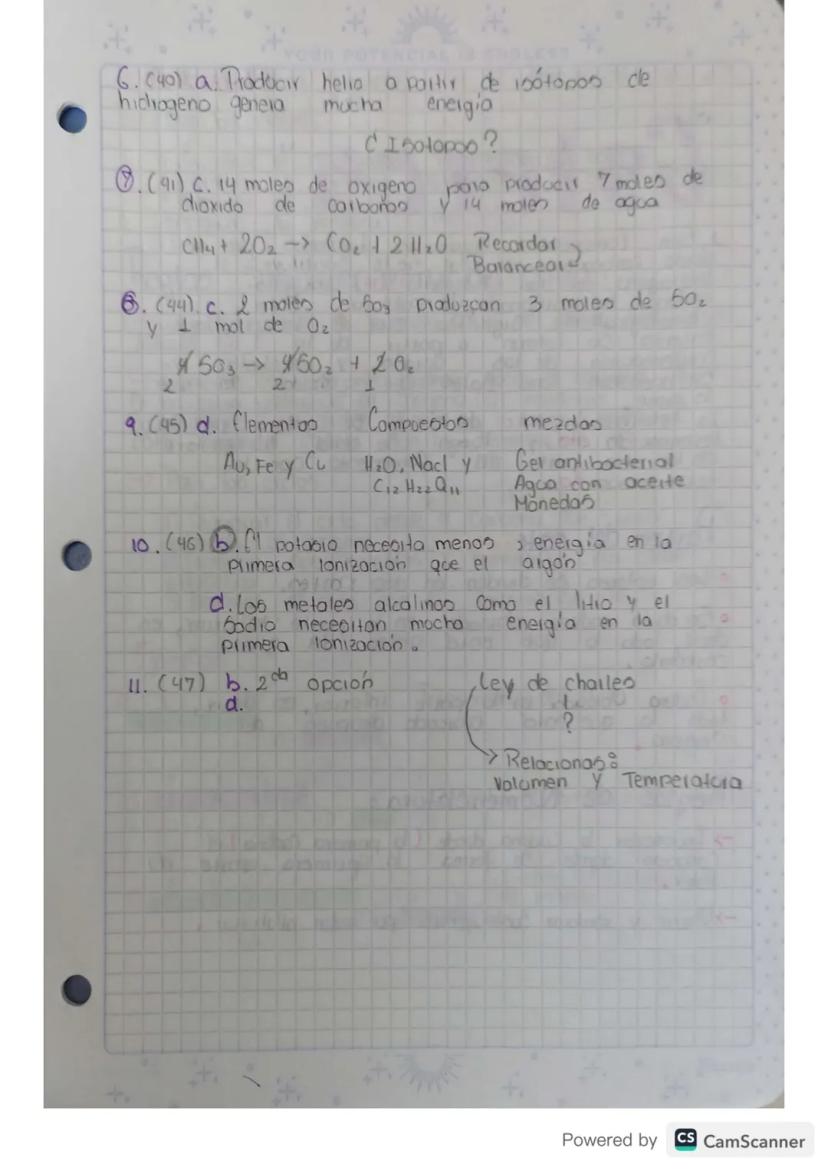 YOUR POTENTIAL IS ENDLESS
6. (40) a. Producir helio a partir de isótopos de
hidrogeno genera mucha energía
¿Isotopos?
7. (41) c. 14 moles de oxigeno para producir 7 moles de
dioxido de carbonos y 14 moles de agua
CH4 + 2O2 -> CO2 + 2 H2O Recordar
Balancear
8. (44). c. 2 moles de SO3 produzcan 3 moles de SO2
y 1 mol de O2
SO3 -> SO2 + O2
2 2 1
9. (45) d. Elementos Compuestos mezclas
Au, Fe y Cu H2O, Nacl y Gel antibacterial
C12 H22 O11 Agua con aceite
Monedas
10. (46) b. El potasio necesita menos energía en la
primera ionización que el argón
d. Los metales alcalinos como el litio y el
sodio necesitan mucha energía en la
primera ionización.
11. (47) b. 2da opción Ley de charles
d.
?
-> Relacionas:
Volumen y Temperatura
Powered by CS CamScanner